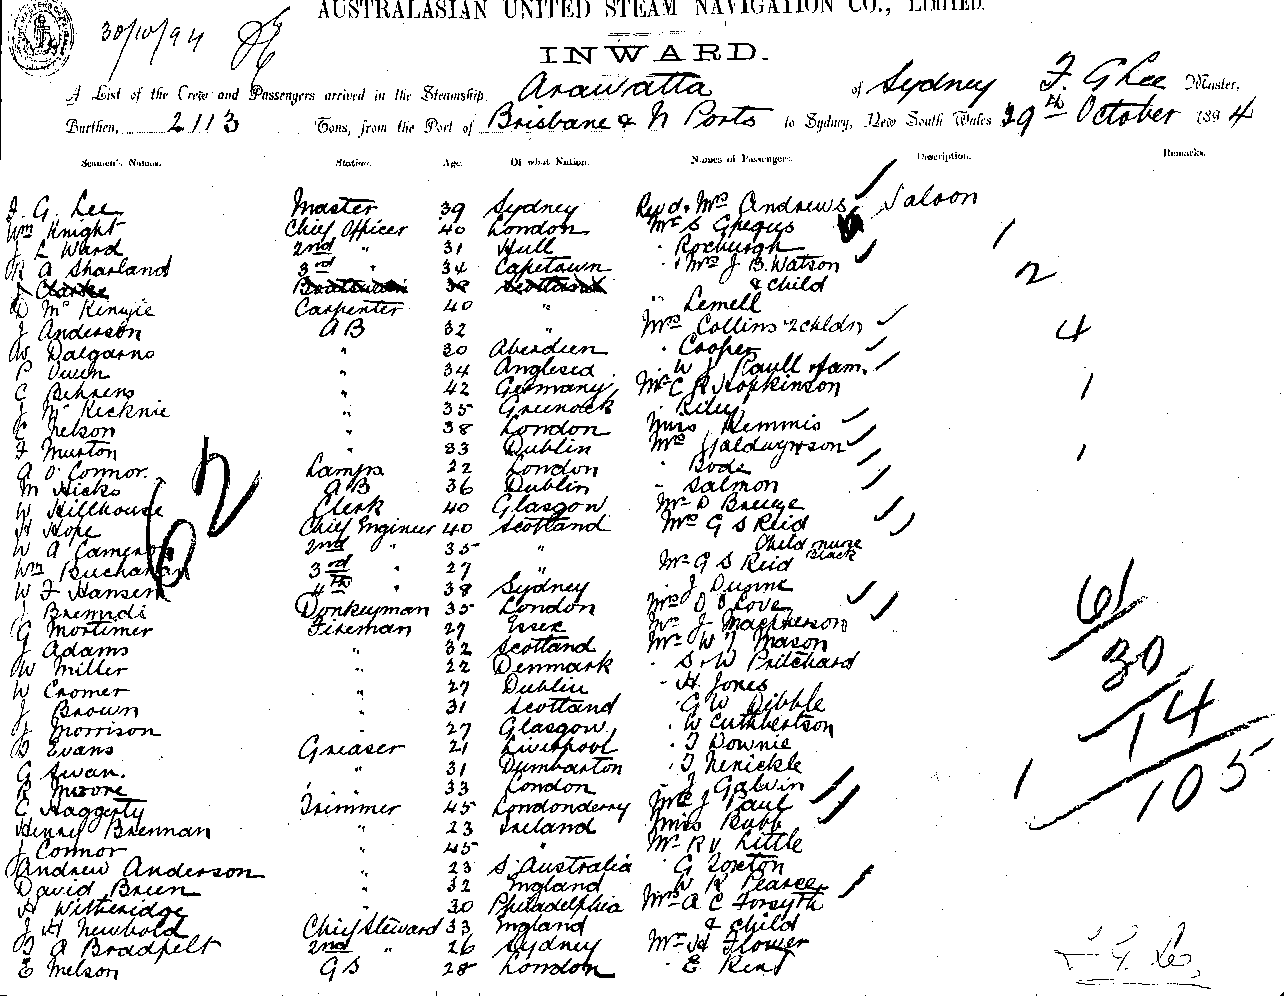 AUSTRALASIAN UNITED STEAM NAVIGATION CO., LIMITED.
30/10/94
INWARD.
A List of the Crew and Passengers arrived in the Steamship Arawatta of Sydney F. G Lee Master,
Burthen, 2113 Tons, from the Port of Brisbane & N Ports to Sydney, New South Wales 29th October 1894
Seamen's Names. Station. Age. Of what Nation. Names of Passengers. Description. Remarks.
F. G. Lee Master 39 Sydney Revd. Mrs Andrews Saloon
Wm Knight Chief Officer 40 London Mr S Gregus 1
J L Ward 2nd " 31 Hull " Roxburgh
R A Sharland 3rd " 34 Capetown " Mrs J B. Watson 2
J Clarke Boatswain 38 Scotland & Child
D McKenzie Carpenter 40 " " Lemell
J Anderson A B 32 " Mrs Collins 2 chldn 4
W Dalgarno " 30 Aberdeen " Cooper
P Owen " 34 Anglesea " W J Paull & fam.
C Behrens " 42 Germany Mr C R Hopkinson 1
J McKechnie " 35 Greenock " Riley
J Nelson " 38 London Miss Hemmis
F Murton " 33 Dublin Mrs 1
A O'Connor. Lamps 22 London " Bode
M Hicks A B 36 Dublin " Salmon
W Hillhouse Clerk 40 Glasgow Mr D Breeze
H Hope Chief Engineer 40 Scotland Mrs G S Reid
W A Cameron 2nd " 35 " Child nurse black
Wm Buchanan 3rd " 27 " Mr G S Reid
W F Hansen 4th " 38 Sydney " J Dunne
J Donkeyman 35 London Mrs Love
G Mortimer Fireman 27 Essex Mr J Macpherson
J Adams " 32 Scotland Mr W J Mason
W Miller " 22 Denmark " S W Pritchard
W Cromer " 27 Dublin " H Jones
J Brown " 31 Scotland " G W Dibble
J Morrison " 27 Glasgow " W Cuthbertson
D Evans Greaser 21 Liverpool " T Downie
G Swan. " 31 Dumbarton " T
R Moore " 33 London " J Galwin 1
E Haggerty Trimmer 45 Londonderry Mrs J Paul
Henry Brennan " 23 Ireland Miss Rubb
J Connor " 45 " Mr R V Little
Andrew Anderson " 23 S. Australia " G Toxton
David Breen " 32 England " W R Pearce
H Witheridge " 30 Philadelphia Mrs A C Forsyth
J H Newbold Chief Steward 33 England & child
D A Bradpelt 2nd " 26 Sydney Mr H Flower
E Melson G S 28 London " E Kent
62
61
30
14
105
F. G. Lee